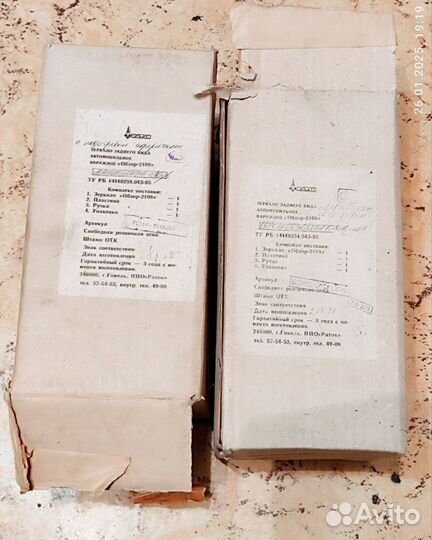 РАТОН
ЗЕРКАЛО ЗАДНЕГО ВИДА
АВТОМОБИЛЬНОЕ
НАРУЖНОЕ «Обзор-2108»
ТУ РБ 14440234.043-95
Комплект поставки:
1. Зеркало «Обзор-2108» — 1
2. Пластина — 1
3. Ручка — 1
4. Упаковка — 1
Артикул
Свободная розничная цена
Штамп ОТК
Знак соответствия
Дата изготовления
Гарантийный срок — 3 года с мо-
мента изготовления.
246000, г. Гомель, НПО«Ратон»
тел. 57-54-53, внутр. 49-08
РАТОН
ЗЕРКАЛО ЗАДНЕГО ВИДА
АВТОМОБИЛЬНОЕ
НАРУЖНОЕ «Обзор-2108»
ТУ РБ 14440234.043-95
Комплект поставки:
1. Зеркало «Обзор-2108» — 1
2. Пластина — 1
3. Ручка — 1
4. Упаковка — 1
Артикул
Свободная розничная цена
Штамп ОТК
Знак соответствия
Дата изготовления
Гарантийный срок — 3 года с мо-
мента изготовления.
246000, г. Гомель, НПО«Ратон»
тел. 57-54-53, внутр. 49-08
26.01.2025 19:19
Avito